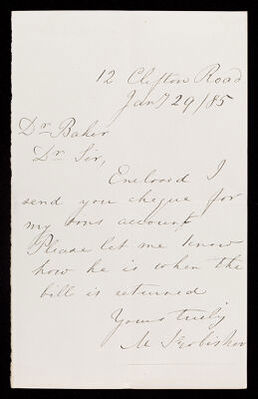 12 Clifton Road
Jany 29/85
Dr Baker
Dr Sir,
Enclosed I
send you cheque for
my sons account
Please let me know
how he is when the
bill is returned
Yours truly
M